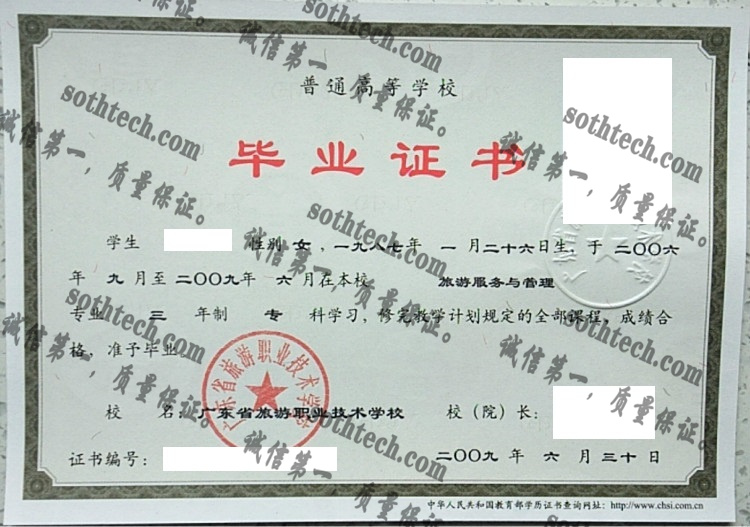 普通高等学校
毕业证书
学生 性别 女，一九八七年 一 月二十六日生，于 二〇〇六
年 九 月至 二〇〇九 年 六 月在本校 旅游服务与管理
专业 三 年制 专 科学习，修完教学计划规定的全部课程，成绩合
格，准予毕业
校 名：广东省旅游职业技术学校 校（院）长：
证书编号： 二〇〇九 年 六 月 三十 日
中华人民共和国教育部学历证书查询网址：http://www.chsi.com.cn
广东省旅游职业技术学校
sothtech.com
诚信第一，质量保证。
sothtech.com
诚信第一，质量保证。
sothtech.com
诚信第一，质量保证。
sothtech.com
诚信第一，质量保证。
sothtech.com
诚信第一，质量保证。
sothtech.com
诚信第一，质量保证。
sothtech.com
诚信第一，质量保证。